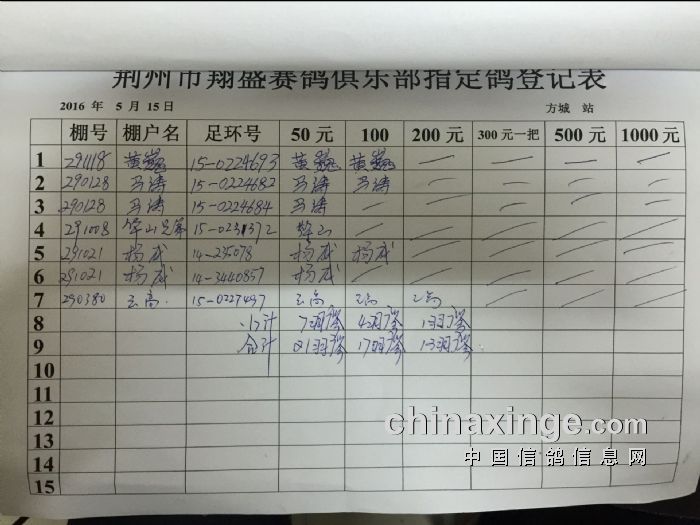 荆州市翔盛赛鸽俱乐部指定鸽登记表
2016 年 5 月 15日 方城 站
棚号 棚户名 足环号 50 元 100 200 元 300 元一把 500 元 1000 元
1 291118 黄魏 15-0224693 黄魏 黄魏 — — — —
2 290128 马涛 15-0224682 马涛 马涛 — — — —
3 290128 马涛 15-0224684 马涛 — — — — —
4 291008 15-0231372 — — — — —
5 291021 杨威 14-235078 杨威 杨威 — — — —
6 291021 杨威 14-3440857 杨威 — — — — —
7 290380 云高 15-0227497 云高 云高 云高 — — —
8 小计 7羽 4羽 1羽
9 合计 21羽 17羽 13羽
10
11
12
13
14
15
chinaxinge.com
中国信鸽信息网